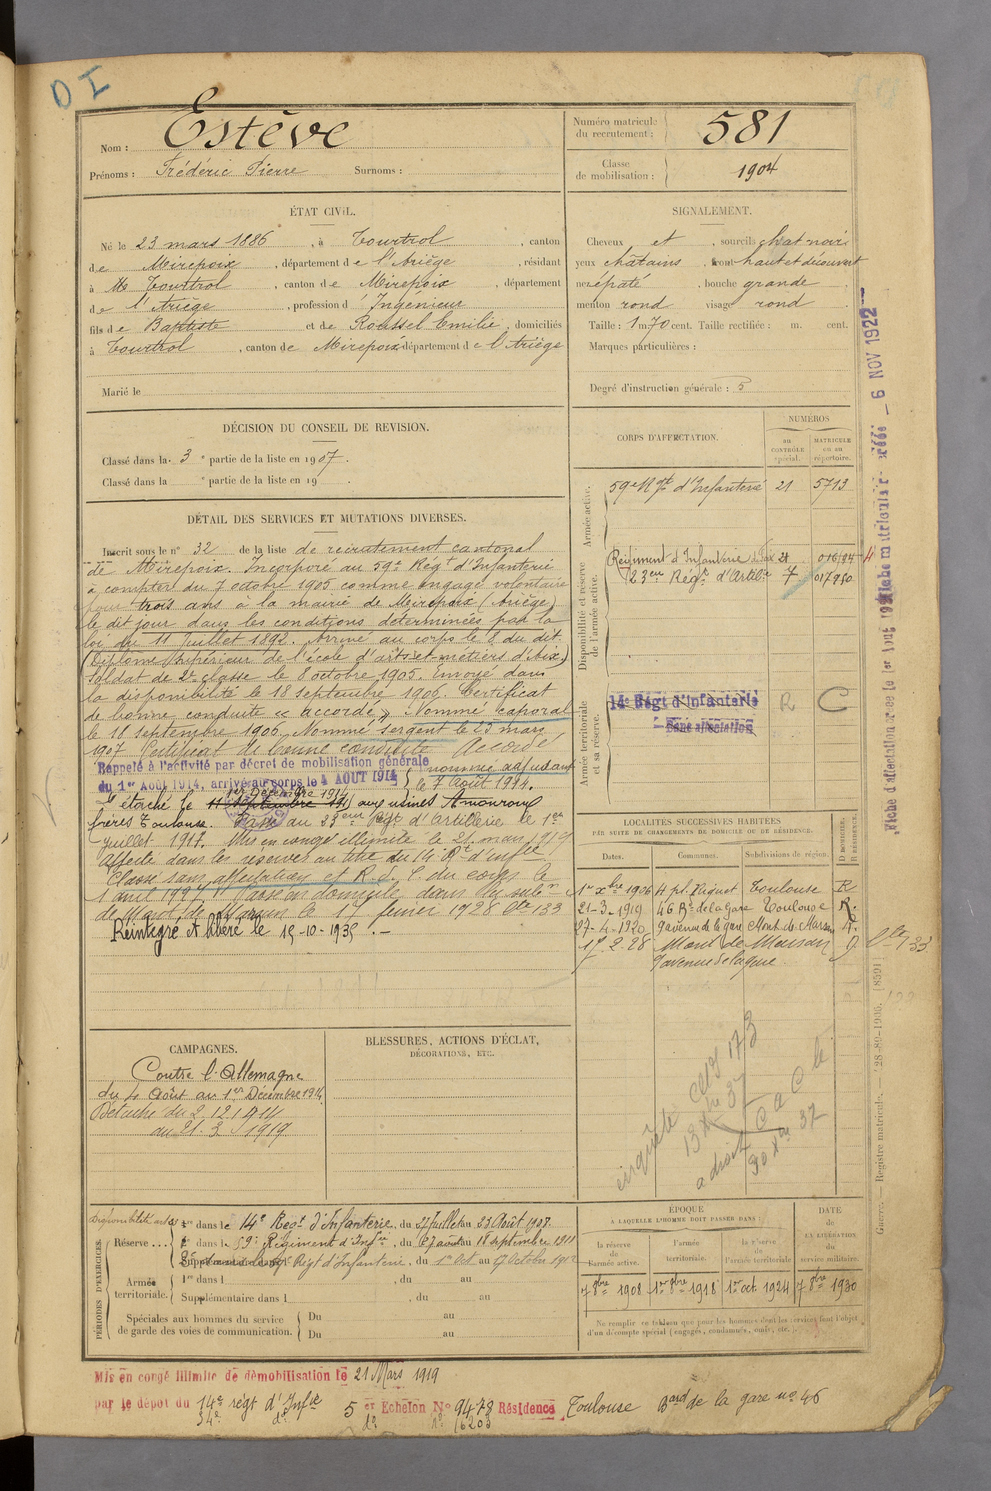 D I
Nom : Estève
Prénoms : Frédéric Pierre Surnoms :
Numéro matricule du recrutement : 581
Classe de mobilisation : 1904
ÉTAT CIVIL.
Né le 23 mars 1886, à Tourtrol, canton
de Mirepoix, département de l'Ariège, résidant
à Tourtrol, canton de Mirepoix, département
de l'Ariège, profession d'Ingénieur
fils de Baptiste et de Roussel Emilie, domiciliés
à Tourtrol, canton de Mirepoix département de l'Ariège
Marié le
SIGNALEMENT.
Cheveux et, sourcils chat noir
yeux châtains, front haut et découvert
nez épaté, bouche grande
menton rond visage rond
Taille : 1 m 70 cent. Taille rectifiée : m. cent.
Marques particulières :
Degré d'instruction générale : 3
DÉCISION DU CONSEIL DE REVISION.
Classé dans la 3e partie de la liste en 1907.
Classé dans la e partie de la liste en 19
DÉTAIL DES SERVICES ET MUTATIONS DIVERSES.
Inscrit sous le n° 32 de la liste de recrutement cantonal
de Mirepoix. Incorporé au 59e Régt d'Infanterie
à compter du 7 octobre 1905 comme engagé volontaire
pour trois ans à la mairie de Mirepoix (Ariège)
le dit jour dans les conditions déterminées par la
loi du 11 Juillet 1892. Arrivé au corps le 8 du dit
(Diplôme supérieur de l'école d'arts et métiers d'Aix)
Soldat de 2e classe le 8 octobre 1905. Envoyé dans
la disponibilité le 18 septembre 1906. Certificat
de bonne conduite « accordé ». Nommé caporal
le 18 septembre 1906. Nommé sergent le 23 mars
1907 Certificat de bonne conduite Accordé
Rappelé à l'activité par décret de mobilisation générale
du 1er Août 1914, arrivé au corps le 4 AOUT 1914
nommé adjudant le 7 août 1914.
1er Décembre 1914
Détaché le 11 Septembre 191 aux usines Amouroux
frères Toulouse. Passé au 23eme Régt d'Artillerie le 1er
juillet 1917. Mis en congé illimité le 21 mars 1919
Affecté dans les réserves au titre du 14 Rt d'inf
Classé sans affectation
1 avril 1927. Passé en domicile dans la subn
de Mont de Marsan le 17 février 1928
Réintégré et libéré le 15-10-1935.-
CORPS D'AFFECTATION.
NUMÉROS
au CONTRÔLE spécial.
MATRICULE ou au répertoire.
Armée active.
59e Rgt d'Infanterie 21 5713
Disponibilité et réserve de l'armée active.
Régiment d'Infanterie 21
23eme Régt d'Artie 7 017950
Armée territoriale et sa réserve.
14e Régt d'Infanterie R C
Sans affectation
LOCALITÉS SUCCESSIVES HABITÉES
PAR SUITE DE CHANGEMENTS DE DOMICILE OU DE RÉSIDENCE.
Dates. Communes. Subdivisions de région. D DOMICILE. R RÉSIDENCE.
1er Xbre 1906 Toulouse R
21-3-1919 46 Bd de la Gare Toulouse R.
27-4-1920 9 avenue de la gare Mont de Marsan R.
17.2.28 Mont de Marsan D
9 avenue de la gare.
Fiche d'affectation créée le 1er Août 19 Fiche matriculaire créée 6 NOV 1922
CAMPAGNES.
Contre l'Allemagne
du 4 Août au 1er Décembre 1914
Détaché du 2.12.1914
au 21.3.1919
BLESSURES, ACTIONS D'ÉCLAT,
DÉCORATIONS, ETC.
enquête
13 Xbre 37
à droit C à C le
30 Xbre 37
PÉRIODES D'EXERCICES.
Réserve... 1re dans le 14e Régt d'Infanterie, du 27 Juillet au 23 Août 1907.
2e dans le 59e Régiment d'Infie, du au 18 septembre 1911
Supplémentaire dans le 59e Régt d'Infanterie, du 1er Oct au 17 Octobre 1912
Armée territoriale. 1re dans l , du au
Supplémentaire dans l , du au
Spéciales aux hommes du service de garde des voies de communication. Du au
Du au
ÉPOQUE
À LAQUELLE L'HOMME DOIT PASSER DANS :
la réserve de l'armée active.
l'armée territoriale.
la réserve de l'armée territoriale
DATE de LA LIBÉRATION du service militaire.
7 8bre 1908 1er 8bre 1918 1er oct 1924 7 8bre 1930
Ne remplir ce tableau que pour les hommes dont les services font l'objet d'un décompte spécial (engagés, condamnés, omis, etc.).
Guerre. — Registre matricule. — 28-89-1905. [8591]
Mis en congé illimité de démobilisation le 21 Mars 1919
par le dépôt du 14e régt d'Infie 5er Echelon No 9478 Résidence Toulouse Bard de la gare no 46